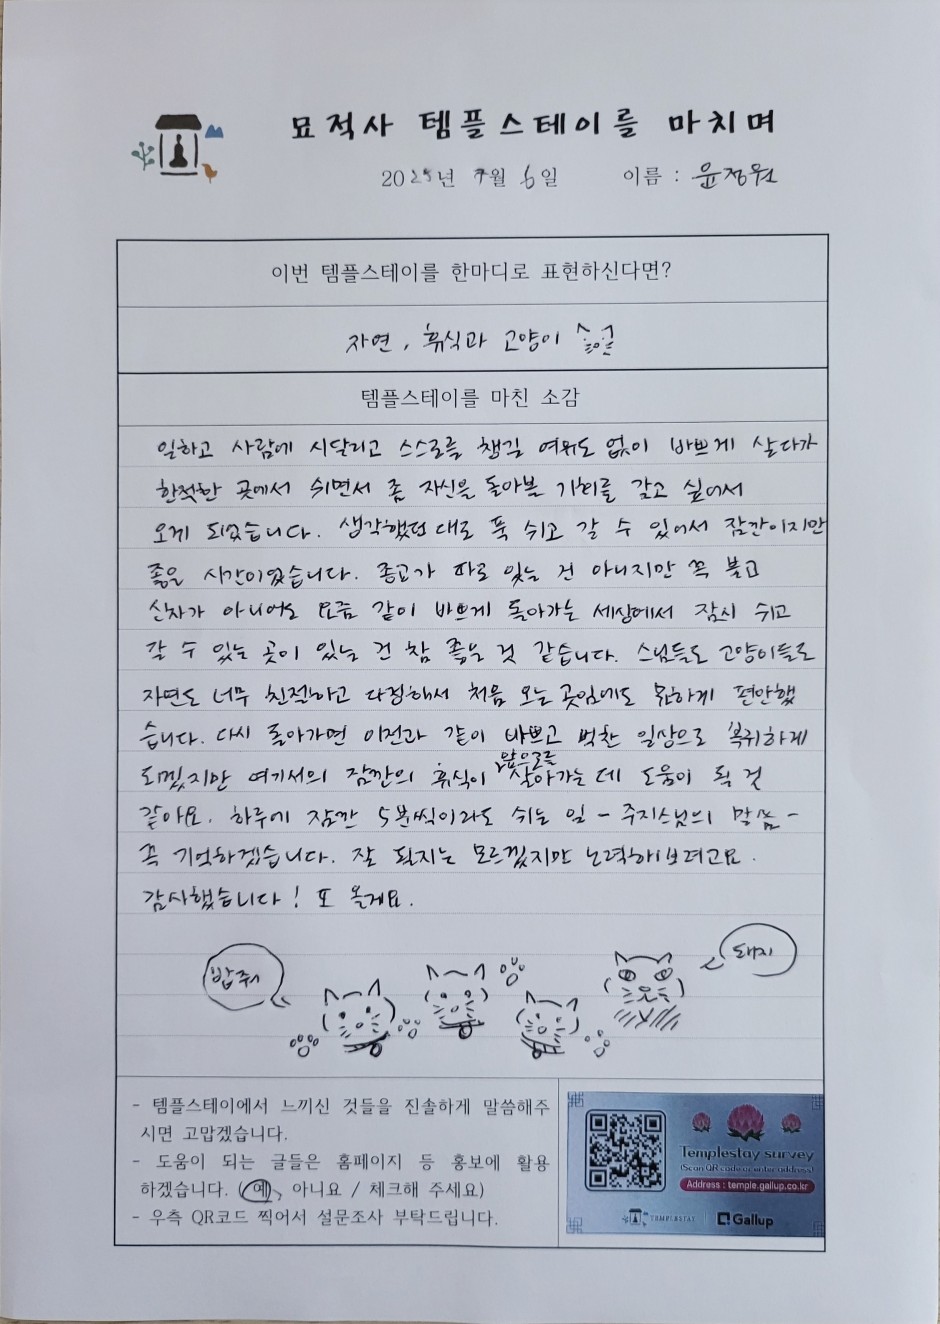 묘적사 템플스테이를 마치며
2025년 7월 6일 이름 : 윤정원
이번 템플스테이를 한마디로 표현하신다면?
자연, 휴식과 고양이
템플스테이를 마친 소감
일하고 사람에 시달리고 스스로를 챙길 여유도 없이 바쁘게 살다가
한적한 곳에서 쉬면서 좀 자신을 돌아볼 기회를 갖고 싶어서
오게 되었습니다. 생각했던 대로 푹 쉬고 갈 수 있어서 잠깐이지만
좋은 시간이었습니다. 종교가 따로 있는 건 아니지만 꼭 불교
신자가 아니어도 요즘 같이 바쁘게 돌아가는 세상에서 잠시 쉬고
갈 수 있는 곳이 있는 건 참 좋은 것 같습니다. 스님들도 고양이들도
자연도 너무 친절하고 다정해서 처음 오는 곳임에도 묘하게 편안했
습니다. 다시 돌아가면 이전과 같이 바쁘고 벅찬 일상으로 복귀하게
되겠지만 여기서의 잠깐의 휴식이 앞으로를 살아가는 데 도움이 될 것
같아요. 하루에 잠깐 5분씩이라도 쉬는 일 - 주지스님의 말씀 -
꼭 기억하겠습니다. 잘 될지는 모르겠지만 노력해보려고요.
감사했습니다! 또 올게요.
밥줘
돼지
- 템플스테이에서 느끼신 것들을 진솔하게 말씀해주
시면 고맙겠습니다.
- 도움이 되는 글들은 홈페이지 등 홍보에 활용
하겠습니다. (예, 아니요 / 체크해 주세요)
- 우측 QR코드 찍어서 설문조사 부탁드립니다.
Templestay survey
(Scan QR code or enter address)
Address : temple.gallup.co.kr
TEMPLESTAY Gallup